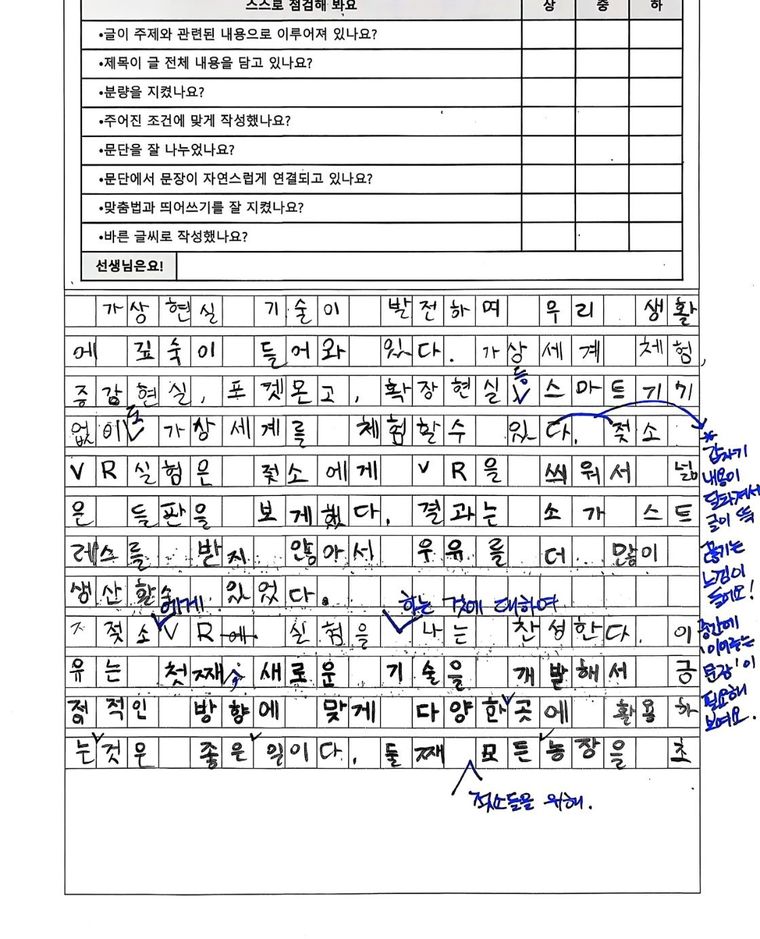 스스로 점검해 봐요 상 중 하
•글이 주제와 관련된 내용으로 이루어져 있나요?
•제목이 글 전체 내용을 담고 있나요?
•분량을 지켰나요?
•주어진 조건에 맞게 작성했나요?
•문단을 잘 나누었나요?
•문단에서 문장이 자연스럽게 연결되고 있나요?
•맞춤법과 띄어쓰기를 잘 지켰나요?
•바른 글씨로 작성했나요?
선생님은요!
가상현실 기술이 발전하며 우리 생활
에 깊숙이 들어와 있다. 가상세계 체험,
등
증강현실, 포켓몬고, 확장현실 스마트기기
도
없이 가상세계를 체험할수 있다. 젖소
VR실험은 젖소에게 VR을 씌워서 넓
은 들판을 보게했다. 결과는 소가 스트
레스를 받지 않아서 우유를 더 많이
생산할수 있었다.
에게 하는 것에 대하여
젖소VR에 실험을 나는 찬성한다. 이
유는 첫째, 새로운 기술을 개발해서 긍
정적인 방향에 맞게 다양한곳에 활용하
는것은 좋은일이다. 둘째 모든농장을 초
젖소들을 위해.
* 갑자기
내용이
달라져서
글이 뚝
끊기는
느낌이
들어요!
중간에
'이어주는
문장'이
필요해
보여요.